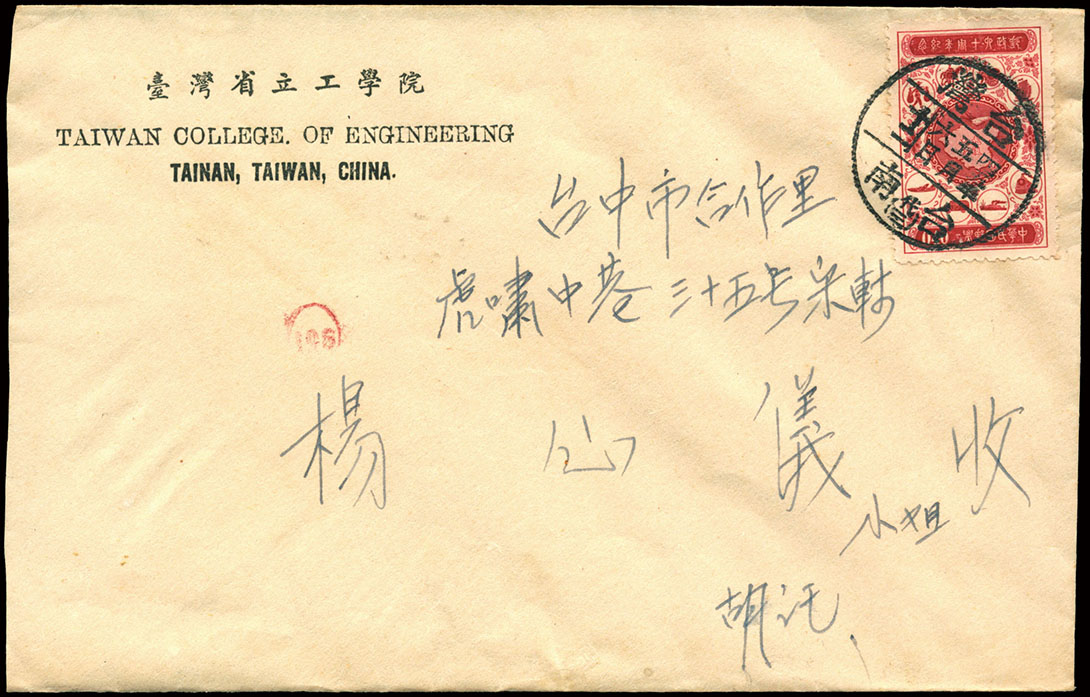 臺灣省立工學院
TAIWAN COLLEGE. OF ENGINEERING
TAINAN, TAIWAN, CHINA.
台中市合作里
虎嘯中巷三十五号宋轉
楊 心 儀 收
小姐
胡託
郵政六十周年紀念
台灣
台南